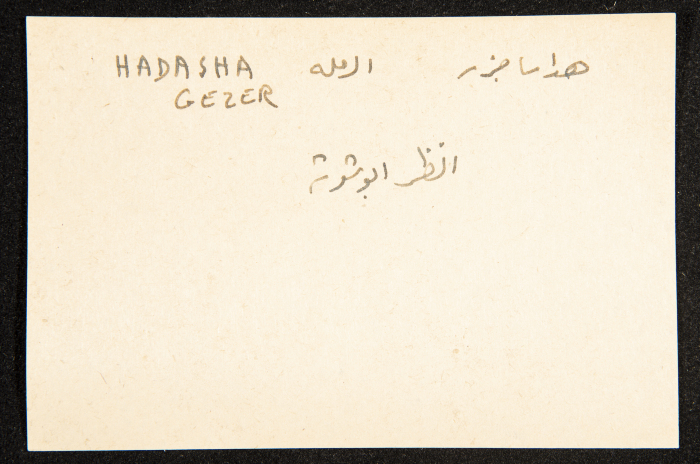 HADASHA الرمله هداسا جزر
GEZER
انظر ابو شوشة